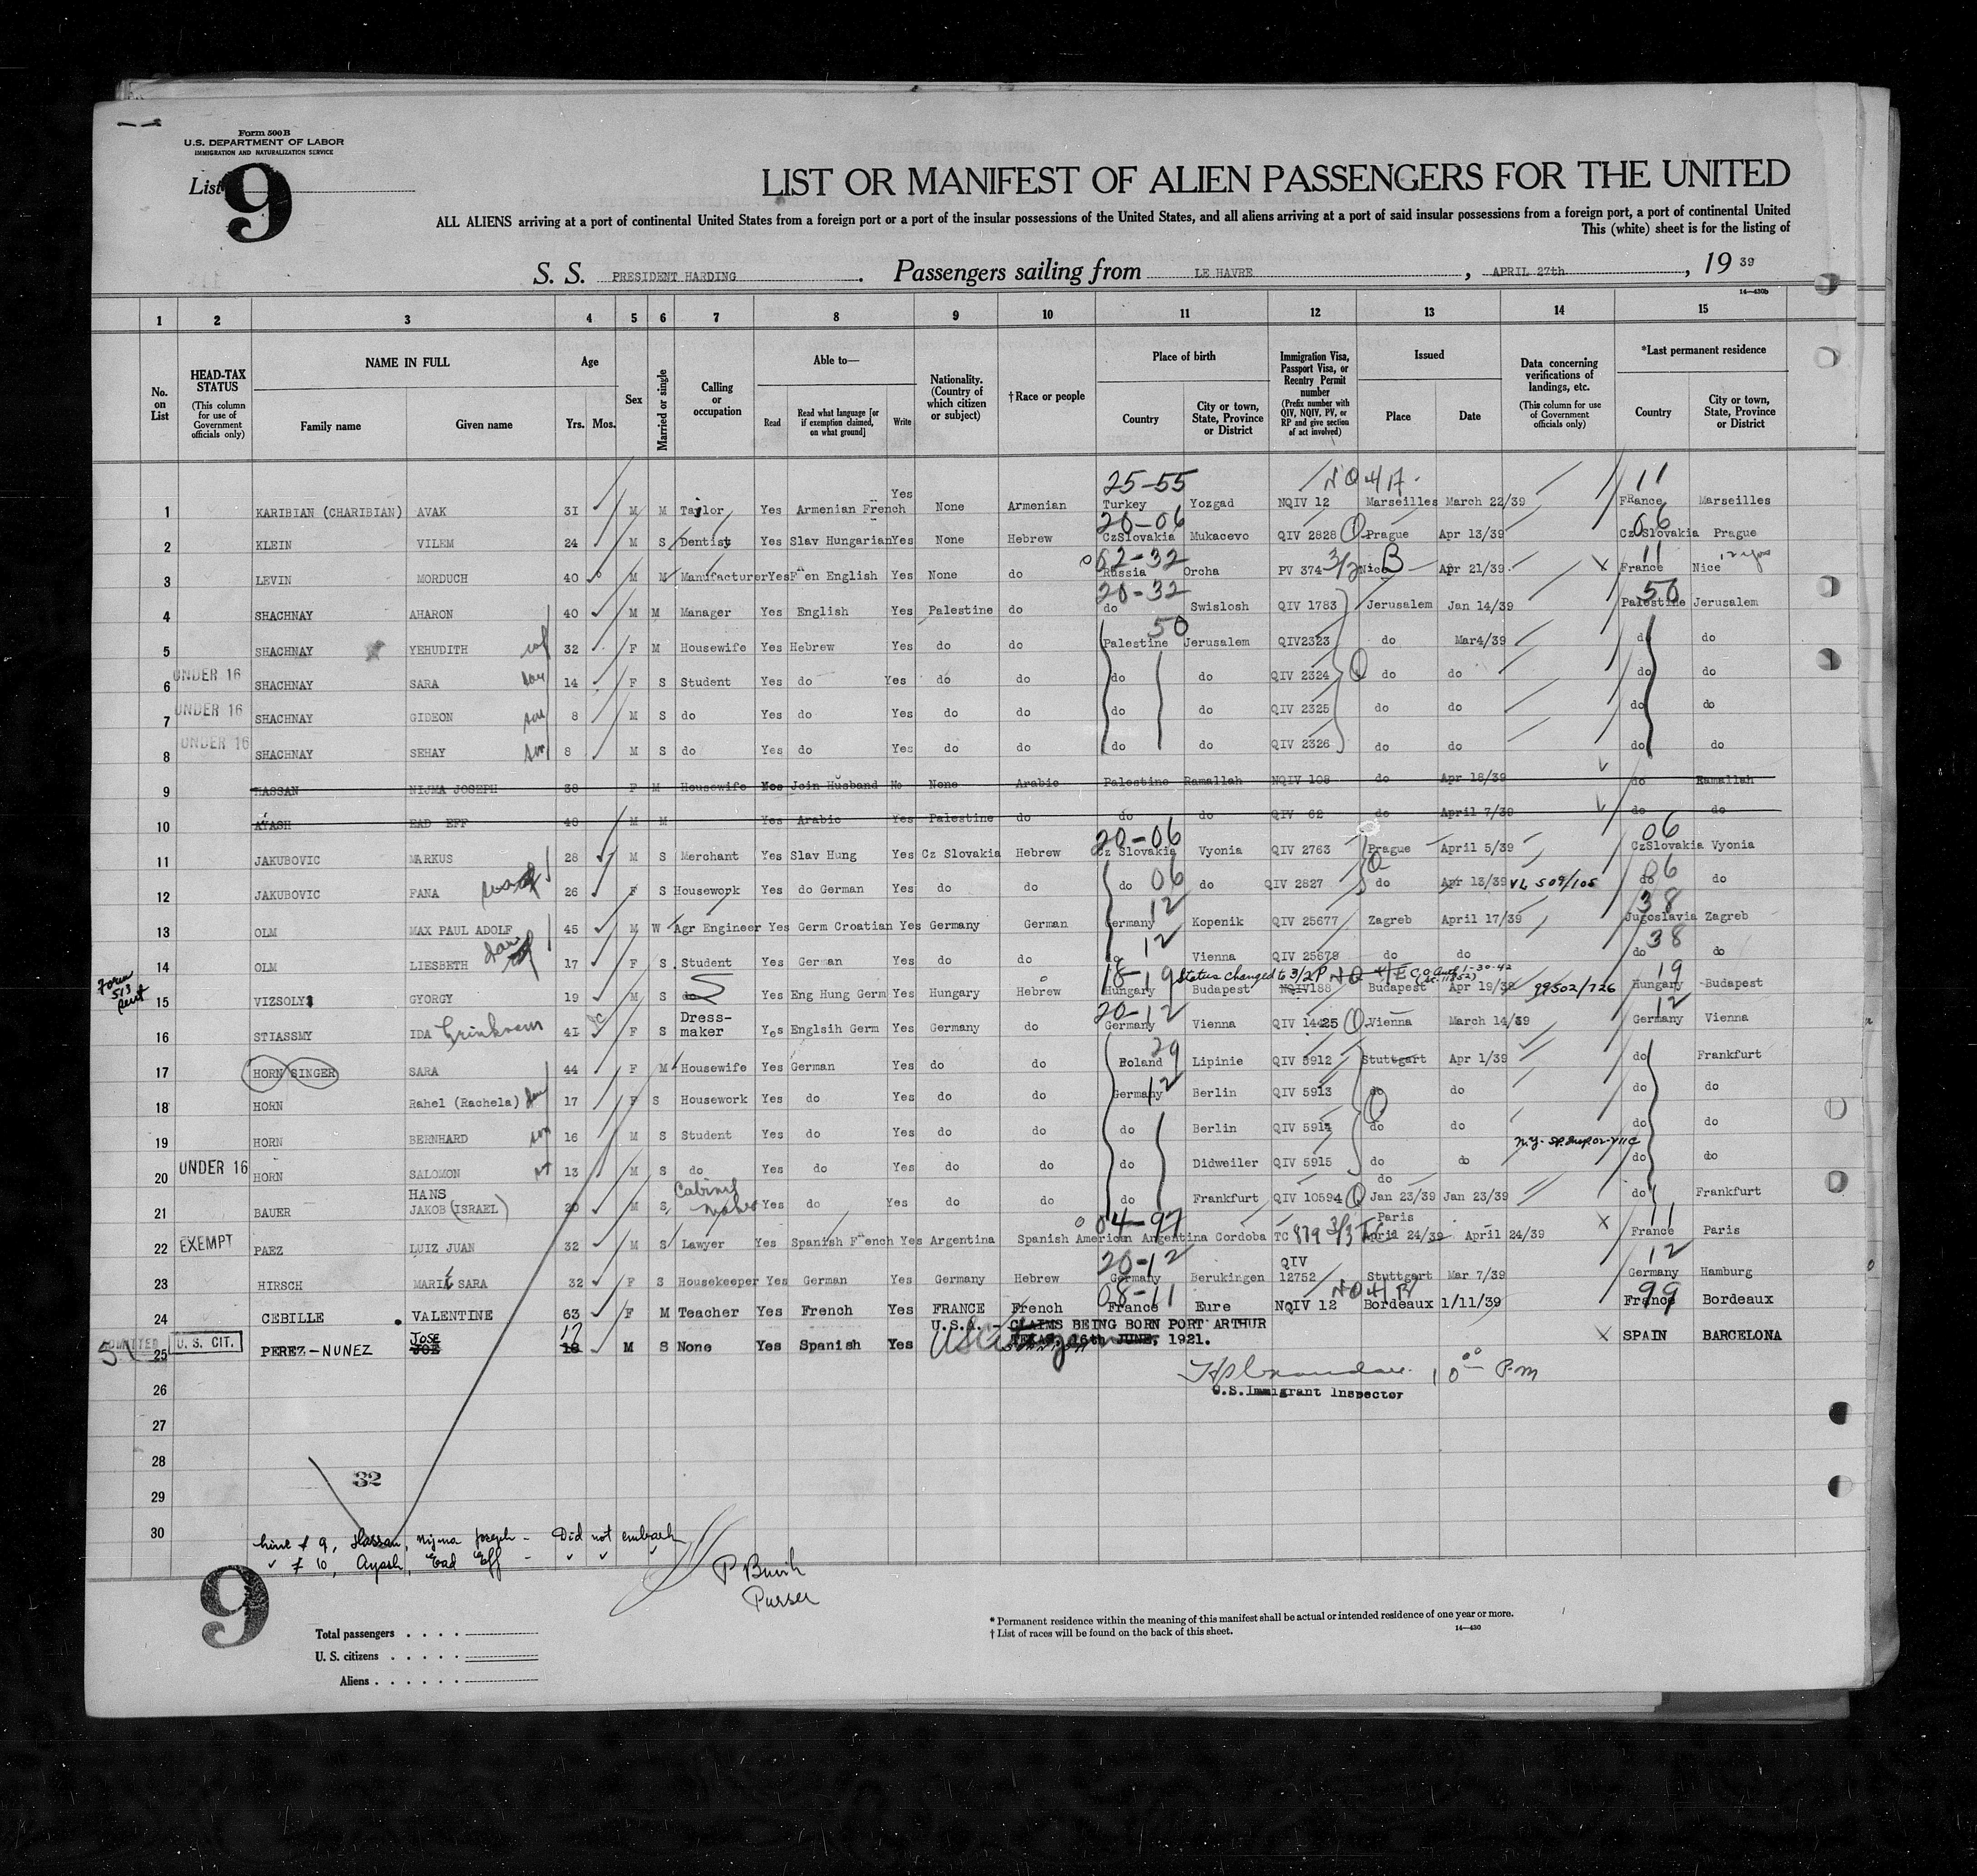 Form 500 B
U.S. DEPARTMENT OF LABOR
IMMIGRATION AND NATURALIZATION SERVICE
List 9
LIST OR MANIFEST OF ALIEN PASSENGERS FOR THE UNITED
ALL ALIENS arriving at a port of continental United States from a foreign port or a port of the insular possessions of the United States, and all aliens arriving at a port of said insular possessions from a foreign port, a port of continental United
This (white) sheet is for the listing of
S. S. PRESIDENT HARDING. Passengers sailing from LE HAVRE, APRIL 27th, 19 39
14—430b
1 2 3 4 5 6 7 8 9 10 11 12 13 14 15
No. on List
HEAD-TAX STATUS (This column for use of Government officials only)
NAME IN FULL Family name Given name
Age Yrs. Mos.
Sex
Married or single
Calling or occupation
Able to— Read Read what language [or if exemption claimed, on what ground] Write
Nationality. (Country of which citizen or subject)
†Race or people
Place of birth Country City or town, State, Province or District
Immigration Visa, Passport Visa, or Reentry Permit number (Prefix number with QIV, NQIV, PV, or RP and give section of act involved)
Issued Place Date
Data concerning verifications of landings, etc. (This column for use of Government officials only)
*Last permanent residence Country City or town, State, Province or District
25-55 NQ 4 A. 11
1 KARIBIAN (CHARIBIAN) AVAK 31 M M Tailor Yes Armenian French Yes None Armenian Turkey Yozgad NQIV 12 Marseilles March 22/39 France Marseilles
20-06 06
2 KLEIN VILEM 24 M S Dentist Yes Slav Hungarian Yes None Hebrew CzSlovakia Mukacevo QIV 2828 Q Prague Apr 13/39 CzSlovakia Prague
62-32 3/2 B 11
3 LEVIN MORDUCH 40 M M Manufacturer Yes F"en English Yes None do Russia Orcha PV 374 Nice Apr 21/39 X France Nice
20-32 50
4 SHACHNAY AHARON 40 M M Manager Yes English Yes Palestine do do Swislosh QIV 1783 Jerusalem Jan 14/39 Palestine Jerusalem
50
5 SHACHNAY YEHUDITH wf 32 F M Housewife Yes Hebrew Yes do do Palestine Jerusalem QIV2323 do Mar4/39 do do
6 UNDER 16 SHACHNAY SARA dau 14 F S Student Yes do Yes do do do do QIV 2324 Q do do do do
7 UNDER 16 SHACHNAY GIDEON son 8 M S do Yes do Yes do do do do QIV 2325 do do do do
8 UNDER 16 SHACHNAY SEHAY son 8 M S do Yes do Yes do do do do QIV 2326 do do do do
9 HASSAN NIJMA JOSEPH 38 F M Housewife Nos Join Husband No None Arabic Palestine Ramallah NQIV 108 do Apr 18/39 do Ramallah
10 AYASH EAD EFF 48 M M Yes Arabic Yes Palestine do do do QIV 62 do April 7/39 do do
20-06 06
11 JAKUBOVIC MARKUS 28 M S Merchant Yes Slav Hung Yes Cz Slovakia Hebrew Cz Slovakia Vyonia QIV 2763 Prague April 5/39 CzSlovakia Vyonia
12 JAKUBOVIC FANA 26 F S Housework Yes do German Yes do do do 06 do QIV 2827 Q do Apr 13/39 VL 509/105 do 06 do
12 38
13 OLM MAX PAUL ADOLF 45 M W Agr Engineer Yes Germ Croatian Yes Germany German Germany Kopenik QIV 25677 Zagreb April 17/39 Jugoslavia Zagreb
14 OLM LIESBETH dau 17 F S Student Yes German Yes do do do 12 Vienna QIV 25678 do do do 38 do
Form 513 sent
18-19 Status changed to 3/2 P NQ 4 E 1-30-42 19
15 VIZSOLYI GYORGY 19 M S do Yes Eng Hung Germ Yes Hungary Hebrew Hungary Budapest NQIV188 Budapest Apr 19/39 99502/726 Hungary Budapest
20-12 12
16 STIASSMY IDA 41 F S Dress-maker Yes Englsih Germ Yes Germany do Germany Vienna QIV 14425 Q Vienna March 14/39 Germany Vienna
17 HORN SINGER SARA 44 F M Housewife Yes German Yes do do Boland 29 Lipinie QIV 5912 Stuttgart Apr 1/39 do Frankfurt
18 HORN Rahel (Rachela) dau 17 F S Housework Yes do Yes do do Germany 12 Berlin QIV 5913 do do do do
19 HORN BERNHARD son 16 M S Student Yes do Yes do do do Berlin QIV 5914 Q do do do do
20 UNDER 16 HORN SALOMON 13 M S do Yes do Yes do do do Didweiler QIV 5915 do do do do
21 BAUER HANS JAKOB (ISRAEL) 20 M S Cabinet maker Yes do Yes do do do Frankfurt QIV 10594 Q do Jan 23/39 Jan 23/39 do Frankfurt
04-97 11
22 EXEMPT PAEZ LUIZ JUAN 32 M S Lawyer Yes Spanish F"ench Yes Argentina Spanish American Argentina Cordoba TC 879 3/3 Paris April 24/39 April 24/39 X France Paris
20-12 12
23 HIRSCH MARIE SARA 32 F S Housekeeper Yes German Yes Germany Hebrew Germany Berukingen QIV 12752 Stuttgart Mar 7/39 Germany Hamburg
08-11 NQ 4 B 99
24 CEBILLE VALENTINE 63 F M Teacher Yes French Yes FRANCE French France Eure NQIV 12 Bordeaux 1/11/39 France Bordeaux
ADMITTED U. S. CIT.
25 PEREZ-NUNEZ JOSE JOE 17 18 M S None Yes Spanish Yes U.S.A. – CLAIMS BEING BORN PORT ARTHUR TEXAS, 16th JUNE, 1921. US Citizen X SPAIN BARCELONA
10 00 P.M
U.S. Immigrant Inspector
26
27
28
32
29
30
Line # 9, Hassan, Nijma Joseph - Did not embark
" # 10, Ayash, Ead Eff - " " "
Purser
9
Total passengers
U. S. citizens
Aliens
* Permanent residence within the meaning of this manifest shall be actual or intended residence of one year or more.
† List of races will be found on the back of this sheet.
14—430